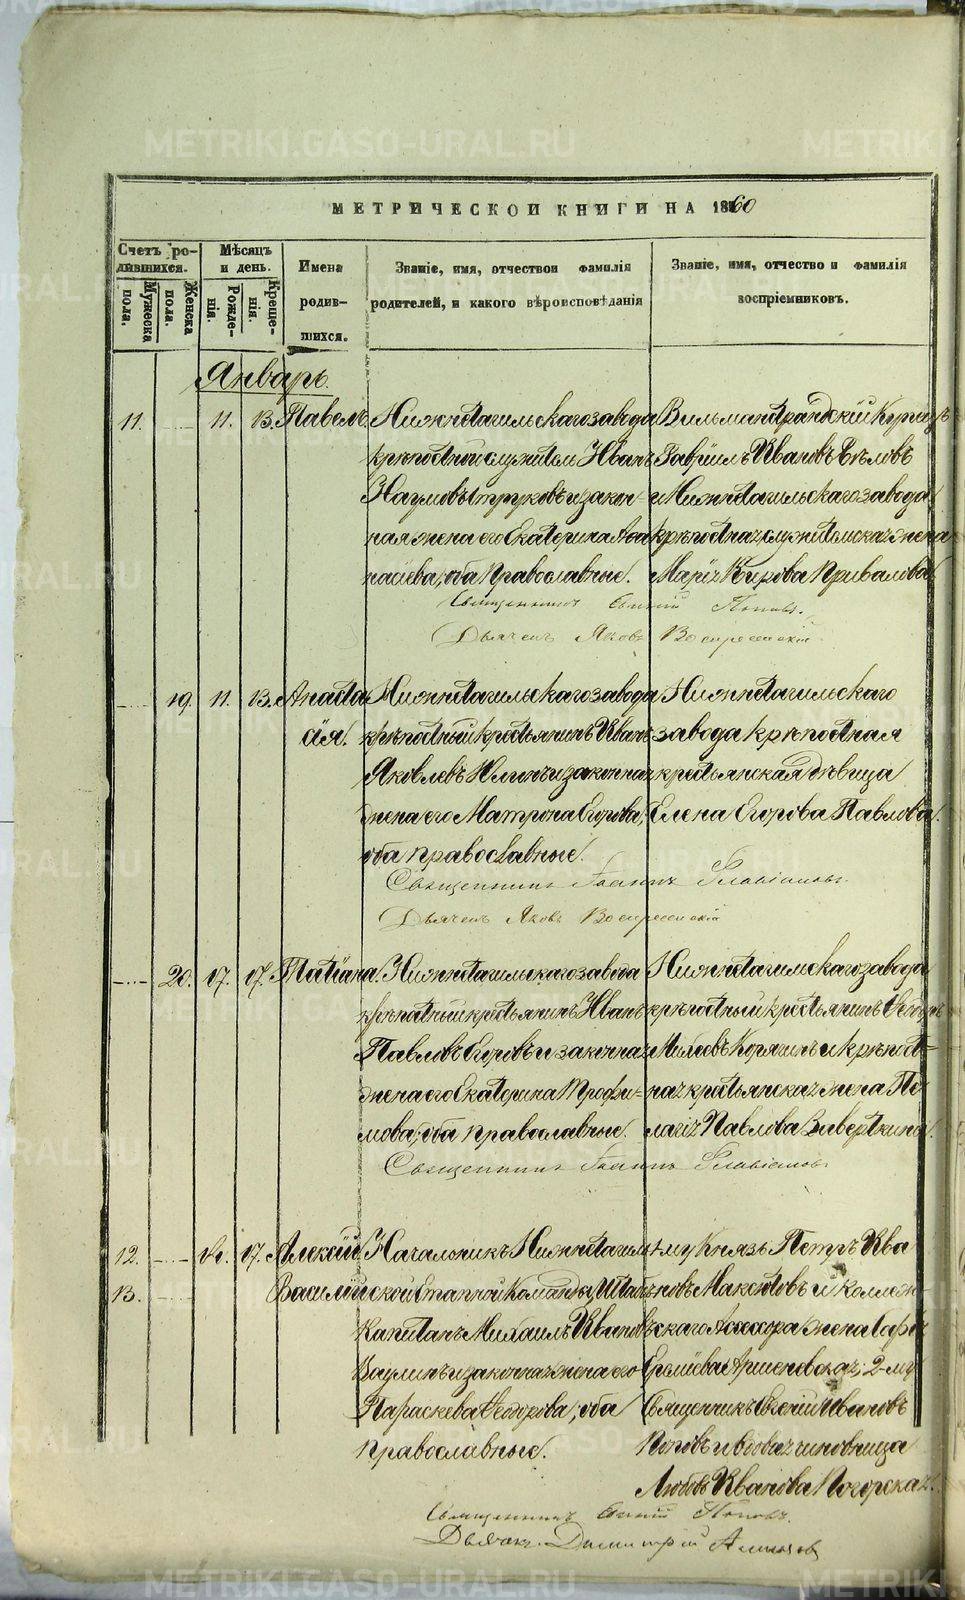 МЕТРИЧЕСКОЙ КНИГИ НА 1860
Счетъ ро-
дившихся.
Мѣсяцъ
и день.
Имена
родив-
шихся.
Званіе, имя, отчество и фамилія
родителей, и какого вѣроисповѣданія
Званіе, имя, отчество и фамилія
воспріемниковъ.
Мужеска
пола.
Женска
пола.
Рожде-
нія.
Креще-
нія.
Январь.
11. 11. 13. Павелъ.
Нижнетагильскаго завода
крѣпостной служитель Иванъ
Наумовъ и закон-
ная жена его Екатерина Афа
насіева, оба православные.
Вильманстрандскій Купецъ
Гавріилъ Ивановъ Бѣловъ
и Нижнетагильскаго завода
крѣпостная служительская жена
Марія Кирова Привалова.
Священникъ Поповъ.
Дьячекъ Яковъ Воскресенскій
19. 11. 13. Анаста
сія.
Нижнетагильскаго завода
крѣпостный крестьянинъ Иванъ
Яковлевъ и законная
жена его Матрона Егорова,
оба православные.
Нижнетагильскаго
завода крѣпостная
крестьянская дѣвица
Елена Егорова Павлова.
Священникъ Іоаннъ Флавіановъ.
Дьячекъ Яковъ Воскресенскій
20. 17. 17. Татіана.
Нижнетагильскаго завода
крѣпостный крестьянинъ Иванъ
Павловъ Егоровъ и законная
жена его Екатерина Трофи-
мова, оба православные.
Нижнетагильскаго завода
крѣпостный крестьянинъ Ѳедоръ
Михѣевъ Корягинъ и крѣпост-
ная крестьянская жена Пе
лагія Павлова
Священникъ Іоаннъ Флавіановъ.
12. 17. Алексій.
13. Василій
Начальникъ Нижнетагиль
ской Етапной Команды Штабъ
Капитанъ Михаилъ Ивановъ
Ваулинъ и законная жена его
Параскева Ѳеодорова, оба
православные.
1-му Князь Петръ Ива
новъ Максютовъ и Коллеж
скаго Ассесора жена Софія
2-му
Священникъ Евгеній Ивановъ
Поповъ и вдовая чиновница
Любовь Иванова
Священникъ Поповъ.
Дьячекъ Димитрій
METRIKI.GASO-URAL.RU